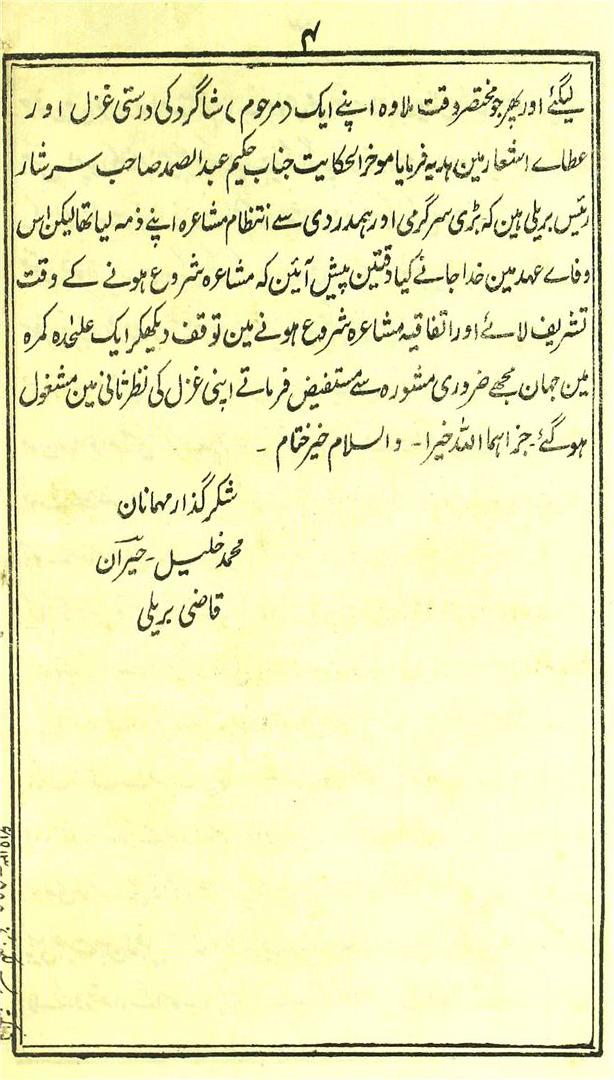 ۴
لیگئے اور پھر جو مختصر وقت ملا وہ اپنے ایک (مرحوم) شاگرد کی درستی غزل اور
عطاے اشعار مین ہدیہ فرمایا موخر الحکایت جناب حکیم عبد الصمد صاحب سرشار
رئیس بریلی ہین کہ بڑی سرگرمی اور ہمدردی سے انتظام مشاعرہ اپنے ذمہ لیا تھا لیکن اس
وفاے عہد مین خدا جانے کیا دقتین پیش آئین کہ مشاعرہ شروع ہونے کے وقت
تشریف لائے اور اتفاقیہ مشاعرہ شروع ہونے مین توقف دیکھکر ایک علیٰحدہ کمرہ
مین جہان مجھے ضروری مشورہ سے مستفیض فرماتے اپنی غزل کی نظر ثانی مین مشغول
ہو گئے۔ جزاہما اللہ خیرا۔ والسلام خیر ختام ۔
شکر گذار مہمانان
محمد خلیل۔ حیران
قاضی بریلی